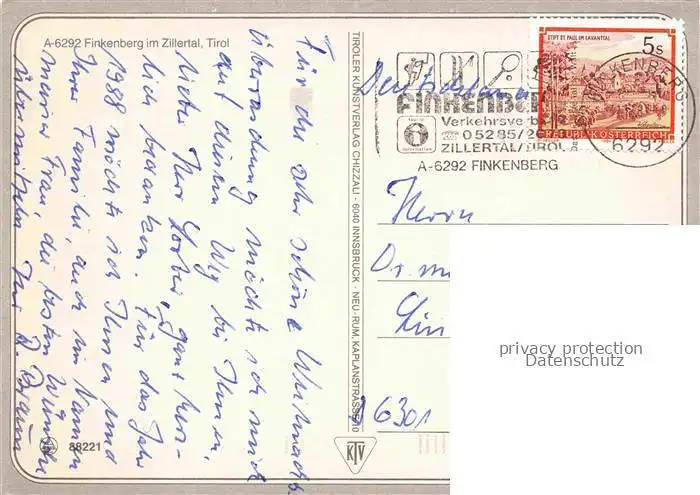 A-6292 Finkenberg im Zillertal, Tirol
Für die sehr schöne Weihnachts
überraschung möchte ich mich
auf diesem Weg bei Ihnen,
lieber Herr ganz herz-
lich bedanken. Für das Jahr
1988 möchte ich Ihnen und
Ihrer Familie, auch im Namen
meiner Frau, die besten Wünsche
übermitteln. Ihr R. Braun
88221
TIROLER KUNSTVERLAG CHIZZALI - 6040 INNSBRUCK - NEU-RUM, KAPLANSTRASSE 10
KTV
STIFT ST. PAUL IM LAVANTTAL
5s
REPUBLIK ÖSTERREICH
FINKENBERG
6292
FINKENBER
Verkehrsverb
05285/26
ZILLERTAL/TIROL
A-6292 FINKENBERG
Herrn
Dr. m
Lin
D 6301
privacy protection
Datenschutz